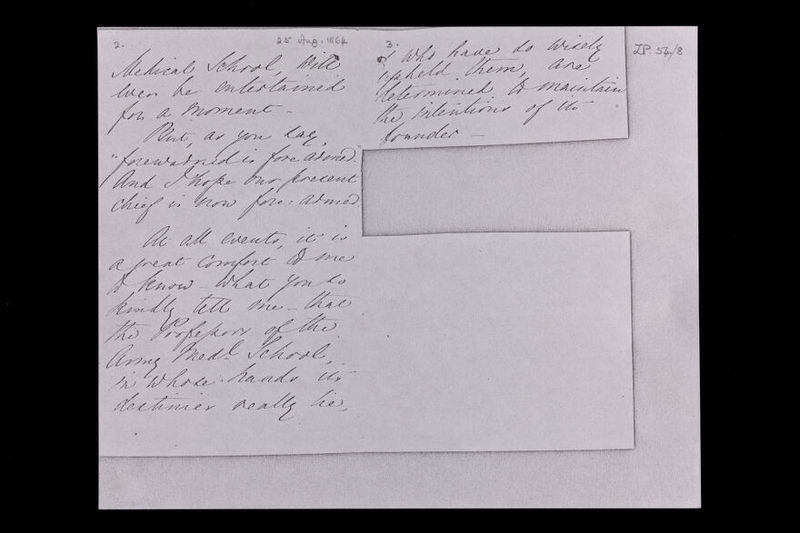 2.
25 Aug. 1864
Medical School, will
ever be entertained
for a moment -
But, as you say,
"forewarned is fore armed.
And I hope our present
Chief is now fore-armed
At all events, it is
a great comfort to me
to know what you so
kindly tell me - that
the Professors of the
Army Medl School,
in whose hands its
destinies really lie,
3.
& who have so wisely
upheld them, are
determined to maintain
the intentions of its
founder -
ZP. 54/8